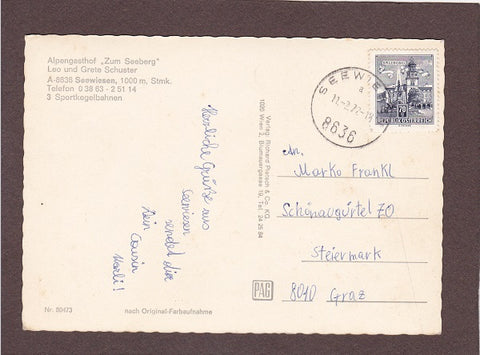 Alpengasthof „Zum Seeberg"
Leo und Grete Schuster
A-8636 Seewiesen, 1000 m, Stmk.
Telefon 0 38 63 - 2 51 14
3 Sportkegelbahnen
Herzliche Grüße aus
Seewiesen
sendet dir
Dein
Cousin
Verlag: Richard Pietsch & Co. KG
1095 Wien 2, Blumauergasse 19, Tel. 24 25 84
SEEWIE
a
8636
REPUBLIK ÖSTERREICH
An.
Marko Frankl
Schönaugürtel 70
Steiermark
8010 Graz
PAG
Nr. 80473
nach Original-Farbaufnahme